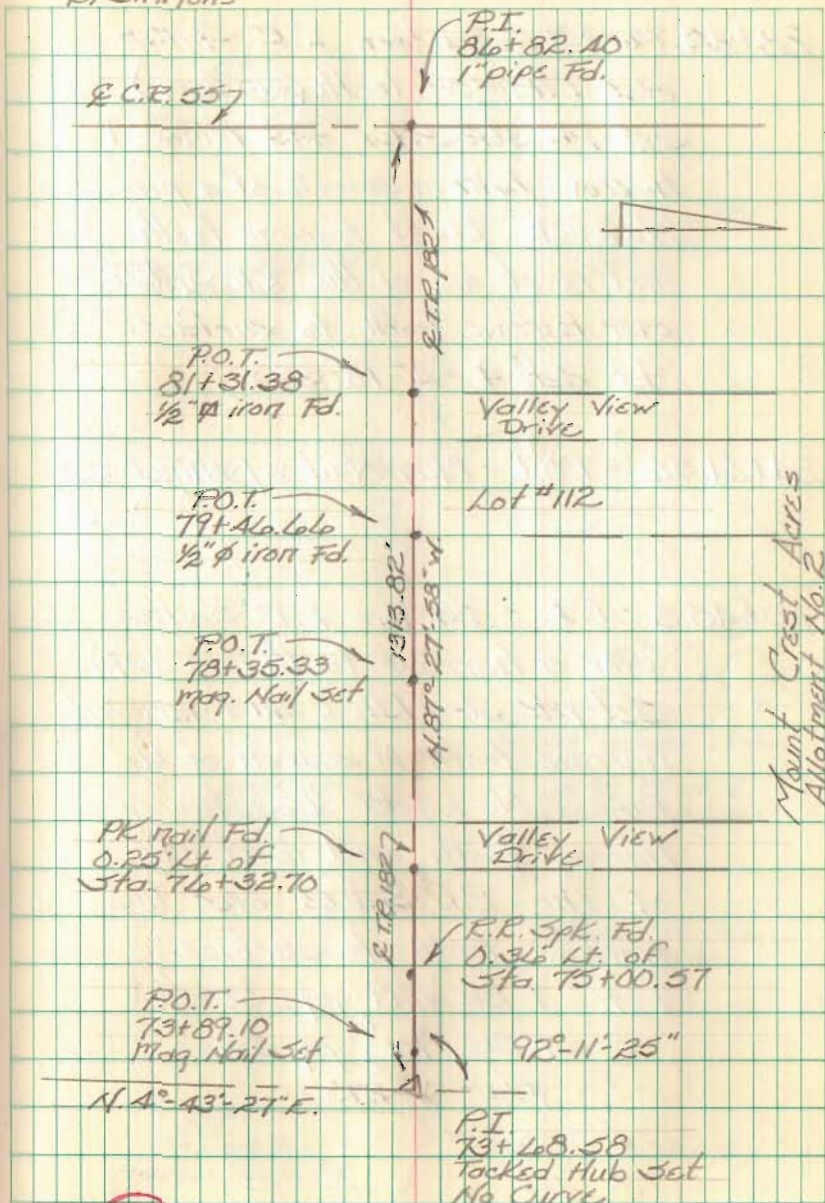 P.I.
86+82.40
1" pipe Fd.
℄ C.R. 557
℄ T.R. 182
P.O.T.
81+31.38
1/2" ϕ iron Fd.
Valley View
Drive
P.O.T.
79+46.66
1/2" ϕ iron Fd.
Lot #112
1313.82'
N.87°-27'-58" W.
P.O.T.
78+35.33
Mag. Nail Set
Mount Crest Acres
Allotment No. 2
PK nail Fd.
0.25' Lt of
Sta. 76+32.70
Valley View
Drive
℄ T.R. 182
R.R. Spk. Fd.
0.36' Lt. of
Sta. 75+00.57
P.O.T.
73+89.10
Mag. Nail Set
92°-11'-25"
N.4°-43'-27" E.
P.I.
73+68.58
Tacked Hub Set
No Curve